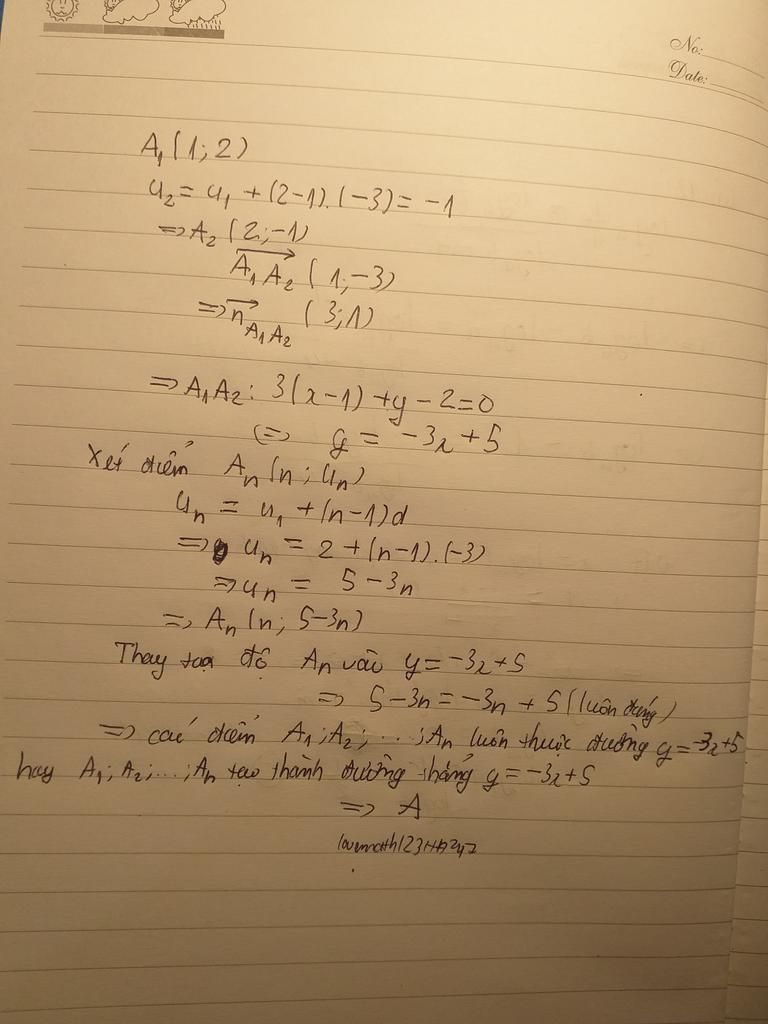 No:
Date:
A₁(1;2)
u₂ = u₁ + (2-1).(-3) = -1
=> A₂(2;-1)
\overrightarrow{A₁A₂} (1;-3)
=> \overrightarrow{n}_{A₁A₂} (3;1)
=> A₁A₂: 3(x-1)+y-2=0
<=> y = -3x+5
Xét điểm Aₙ(n; uₙ)
uₙ = u₁ + (n-1)d
=> uₙ = 2+(n-1).(-3)
=> uₙ = 5-3n
=> Aₙ(n; 5-3n)
Thay toạ độ Aₙ vào y=-3x+5
=> 5-3n = -3n + 5 (luôn đúng)
=> các điểm A₁;A₂;...;Aₙ luôn thuộc đường y=-3x+5
hay A₁;A₂;...;Aₙ tạo thành đường thẳng y=-3x+5
=> A